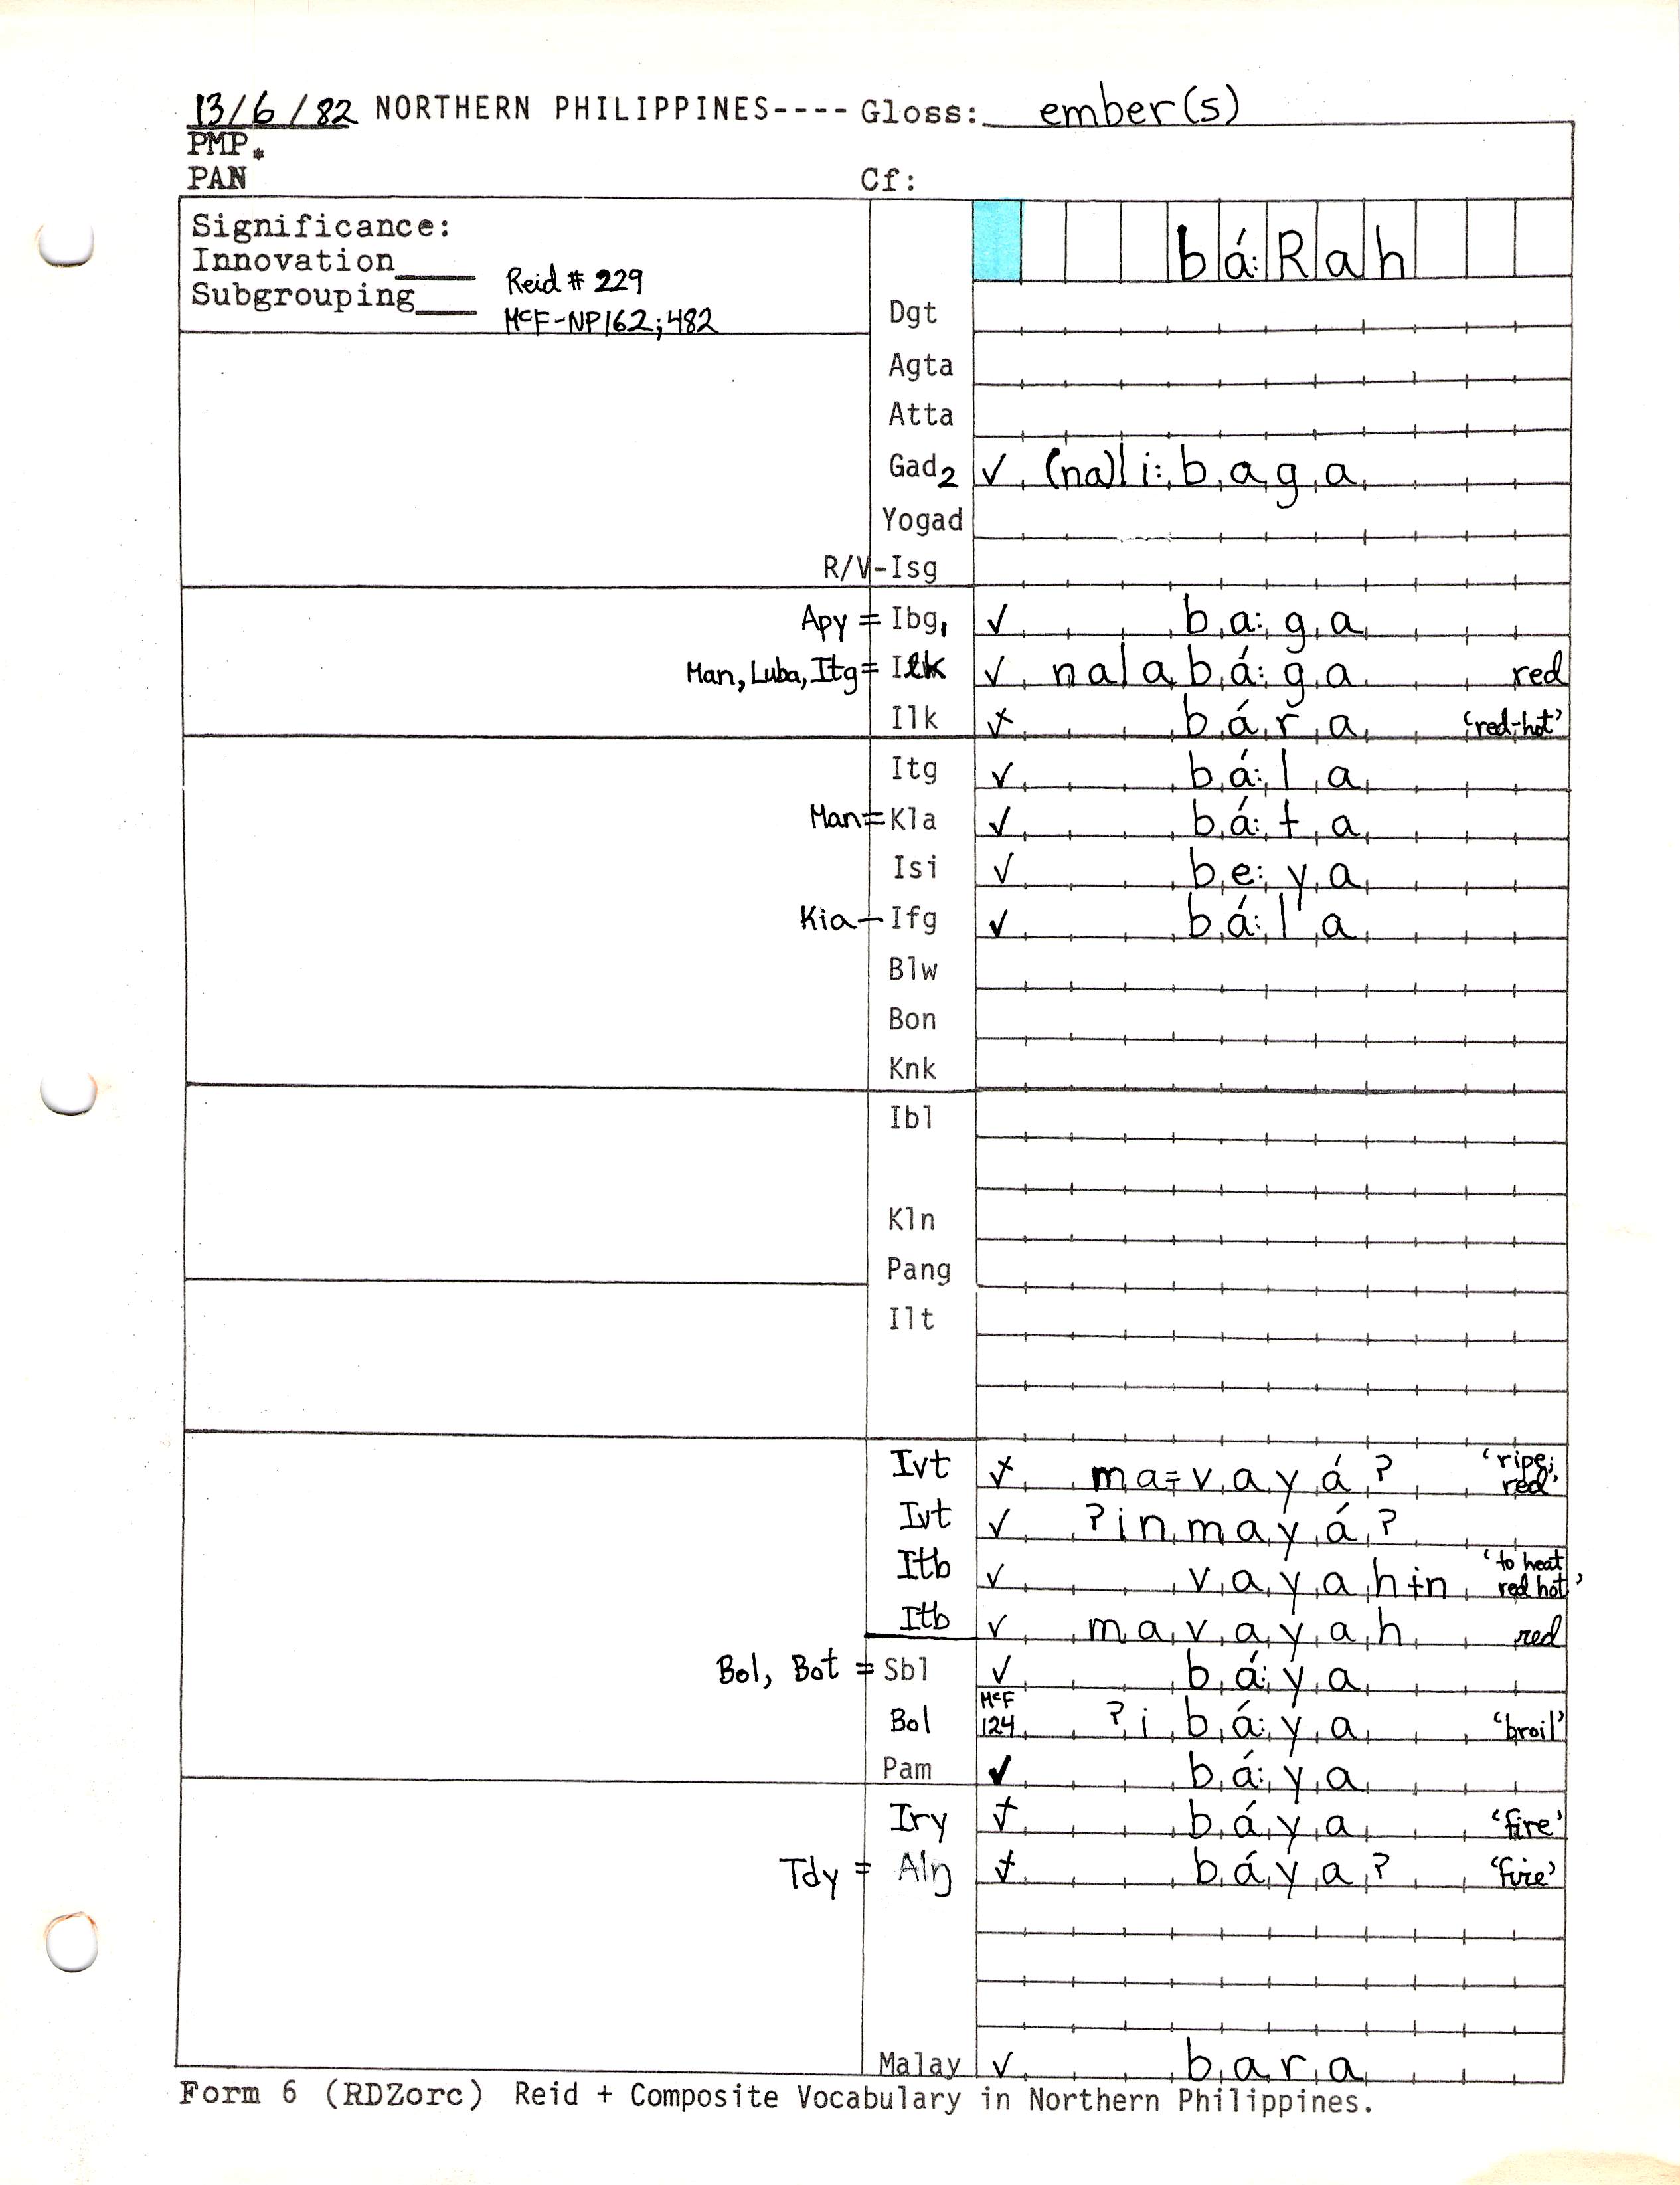 13/6/82 NORTHERN PHILIPPINES---- Gloss: ember(s)
PMP*
PAN Cf:
Significance:
Innovation____
Subgrouping___
Reid # 229
McF-NP162;482
bá:Rah
Dgt
Agta
Atta
Gad2 ✓ (na)li:baga
Yogad
R/V-Isg
Apy = Ibg1 ✓ ba:ga
Man, Luba, Itg = Ilk ✓ nalabá:ga red
Ilk ✓ bára 'red-hot'
Itg ✓ bá:la
Man = Kla ✓ bá:ɫa
Isi ✓ be:ya
Kia - Ifg ✓ bá:la
Blw
Bon
Knk
Ibl
Kln
Pang
Ilt
Ivt ✓ ma=vayá? 'ripe; red'
Ivt ✓ ?inmayá?
Itb ✓ vayahɨn 'to heat red hot'
Itb ✓ mavayah red
Bol, Bot = Sbl ✓ bá:ya
Bol McF 124 ?ibá:ya 'broil'
Pam ✓ bá:ya
Iry ✓ báya 'fire'
Tdy = Alŋ ✓ báya? 'fire'
Malay ✓ bara
Form 6 (RDZorc) Reid + Composite Vocabulary in Northern Philippines.